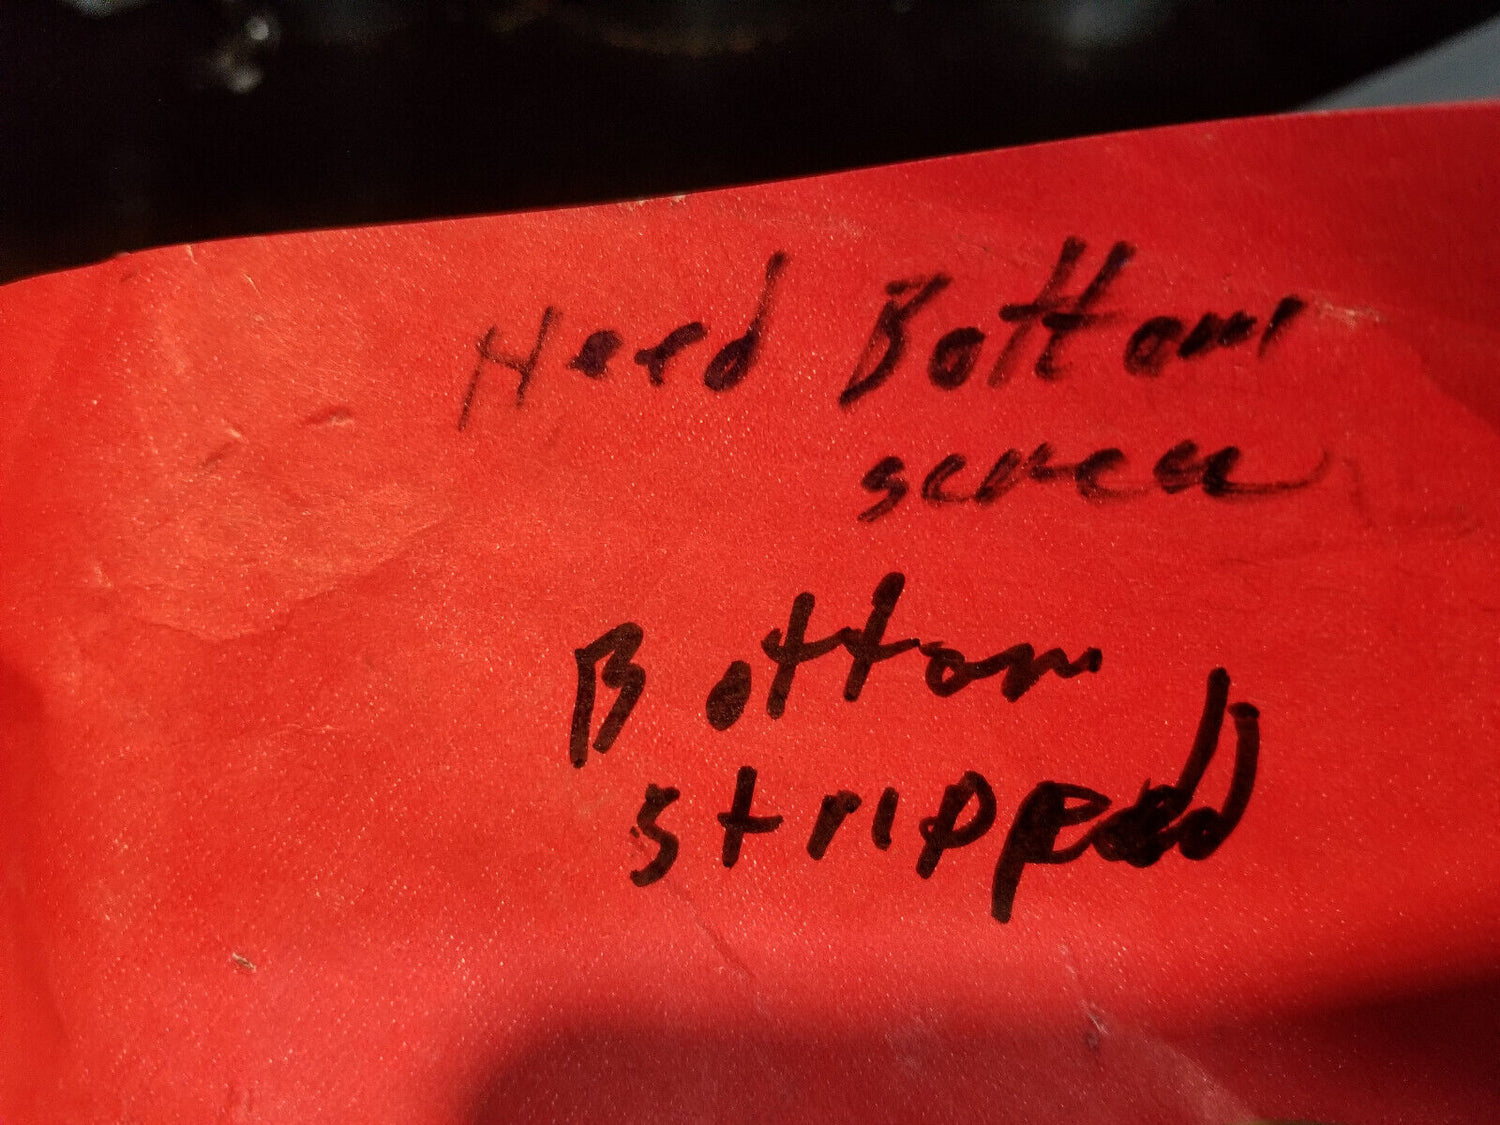 Need Bottom
screw
Bottom
stripped